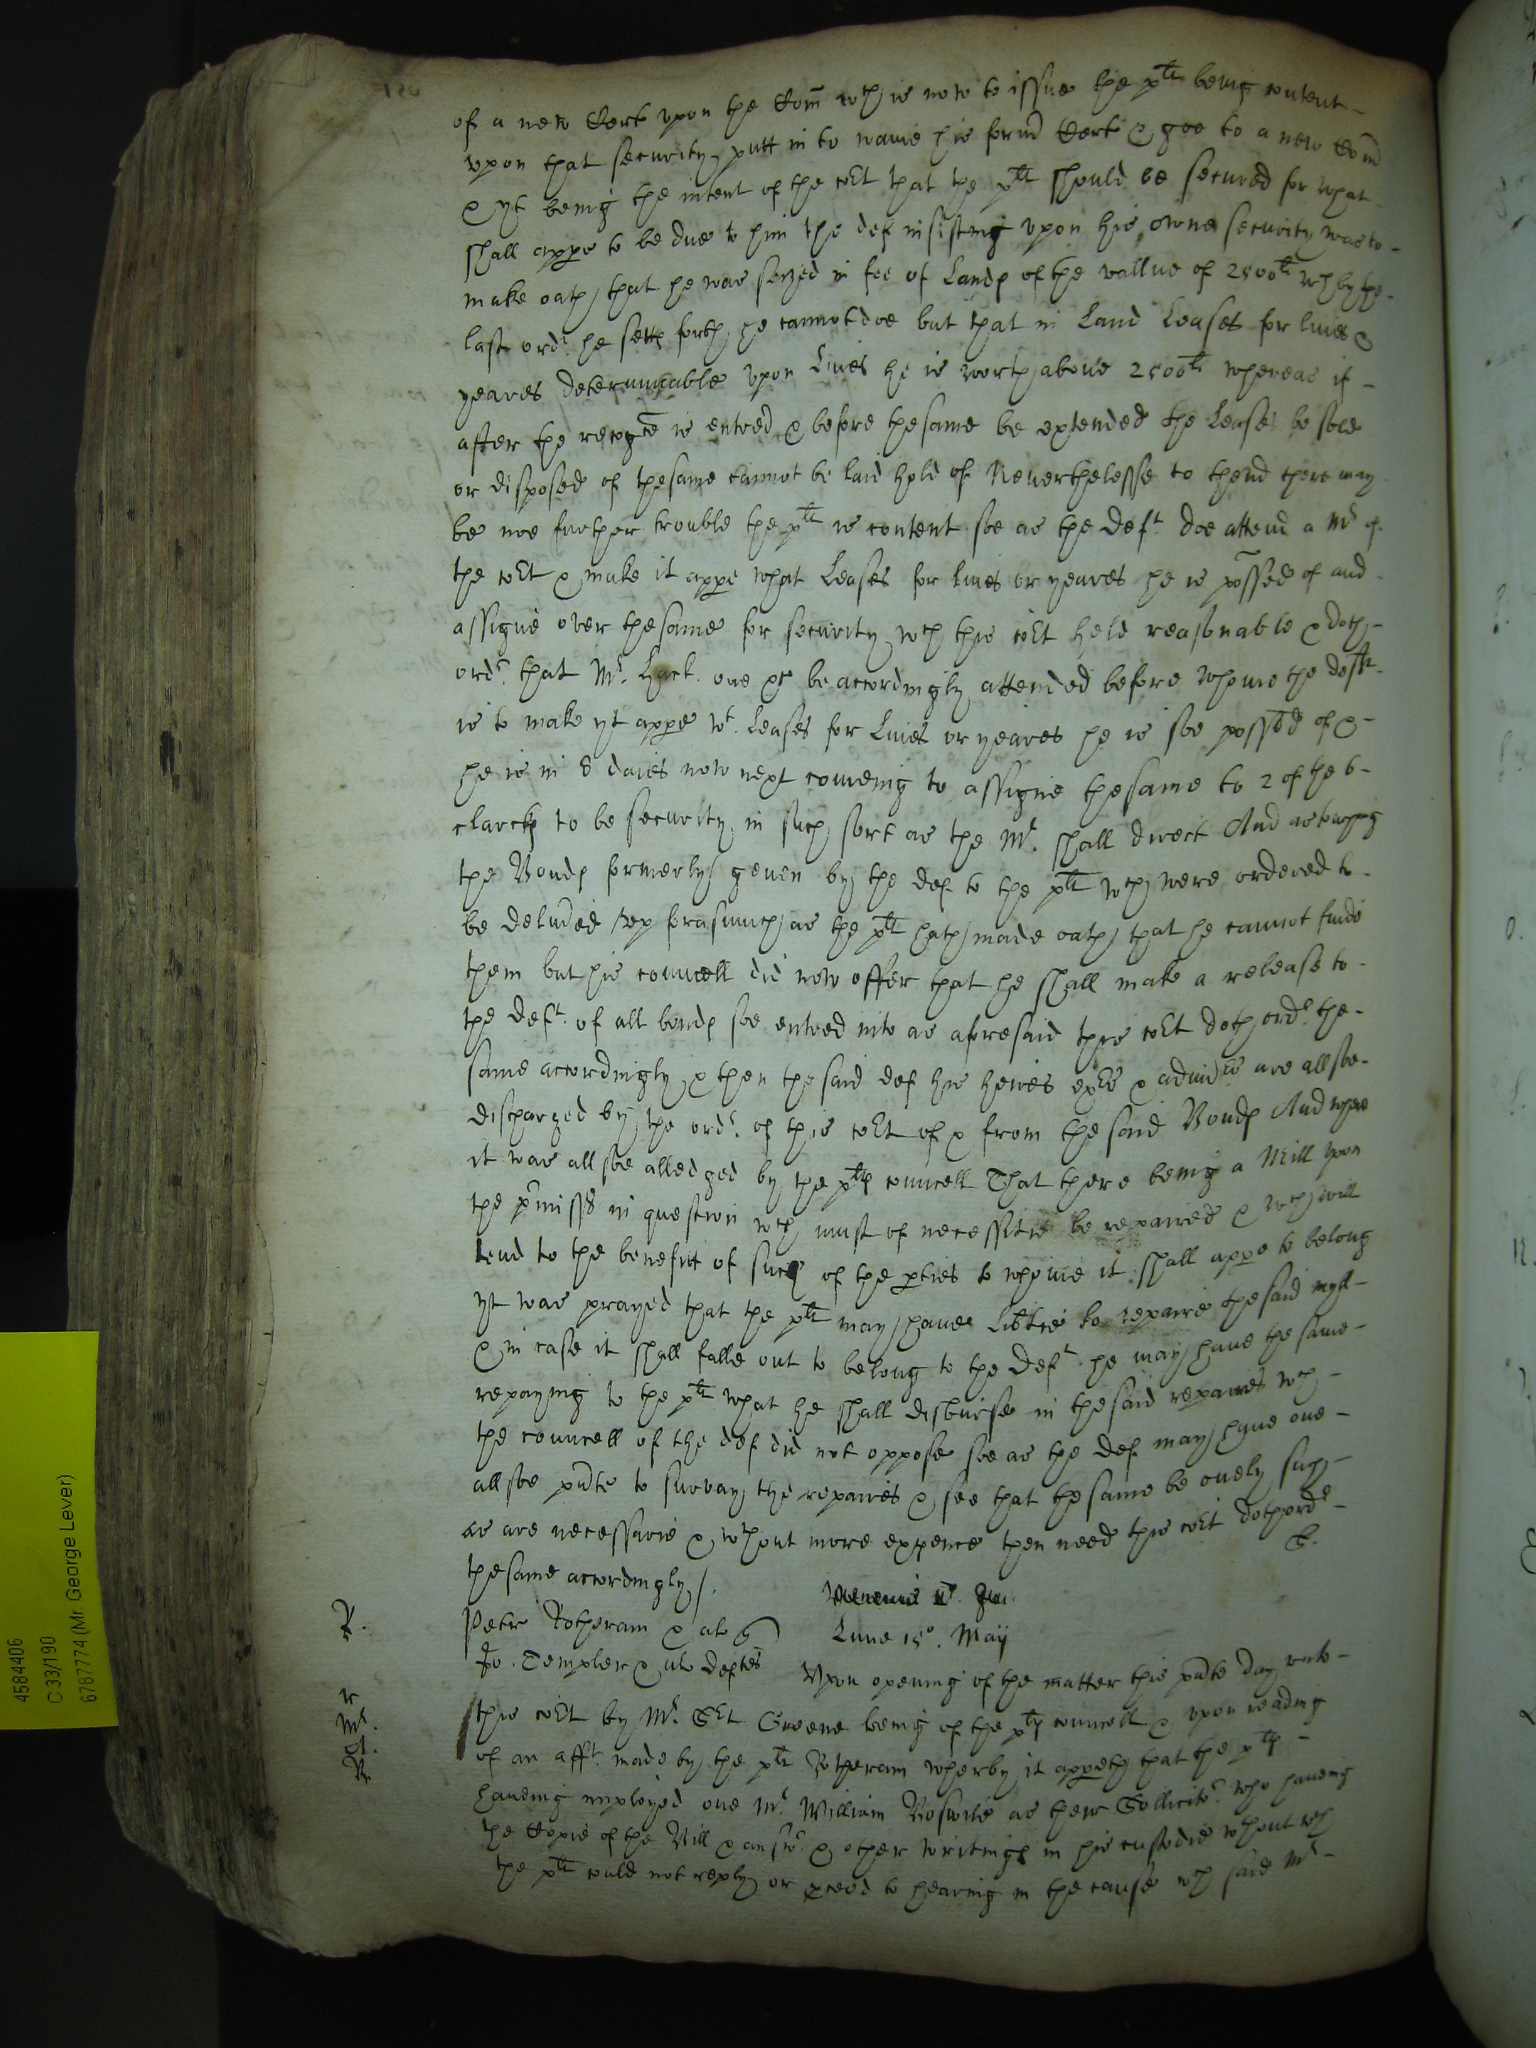 of a new Cert upon the Com wch is now to issue the plt being content
upon that security putt in to waive his formr Cert & goe to a new Com
& yt being the intent of the cort that the plt should be secured for what
shall appe to be due to him the def insisting upon his owne security was to
make oath that he was seized in fee of Lands of the vallue of 2500li wch by the
last ordr he setts forth he cannot doe but that in Land Leases for lives &
yeares determinable upon Lives he is worth above 2500li whereas if
after the recogce is entred & before the same be extended the Leases be sold
or disposed of the same cannot be laid hold of Neverthelesse to thend there may
be noe further trouble the plt is content soe as the Deft doe attend a Mr of
the cort & make it appe what Leases for lives or yeares he is possed of and
assigne over the same for security wch this cort held reasonable & doth
ordr that Mr one &c be accordingly attended before whome the deft
is to make yt appe wt Leases for Lives or yeares he is soe possed of &
he is in 8 daies now next comeing to assigne the same to 2 of the 6
clarcks to be security in such sort as the Mr shall direct And as touching
the Bonds formerly geven by the def to the plt wch were ordered to
be delived up forasmuch as the plt hath made oath that he cannot finde
them but his councell did now offer that he shall make a release to
the Deft of all bonds soe entred into as aforesaid this cort doth ordr the
same accordingly & then the said def his heires exrs & admrs are allsoe
discharged by the ordr of this cort of & from the said Bonds And where
it was allsoe alledged by the plts councell That there being a Mill upon
the pmisses in question wch must of necessitie be repaired & wch will
tend to the benefitt of such of the pties to whome it shall appe to belong
yt was prayed that the plt may have libtie to repaire the said myll
& in case it shall falle out to belong to the Deft he may have the same
repaying to the plt what he shall disburse in the said repaires wch
the councell of the def did not oppose soe as the def may have one
allsoe psente to survay the repaires & see that the same be onely such
as are necessarie & wthout more expence then need this cort doth ordr
the same accordingly
R.
Petr Rotheram & al
Lune 15o May
Jo Templer & al deftes
Upon opening of the matter this psente day unto
this cort by Mr Sert Greene being of the plts councell & upon reading
of an afft made by the plt Rotheram wherby it appeth that the plts
haveing imployed one Mr William Boswile as their Sollicitor who haveing
the Copie of the Bill & answr & other writings in his custodie wthout wch
the plt could not reply or pceed to hearing in the cause wch said Mr
4584406
C 33/190
6787774 (Mr. George Lever)